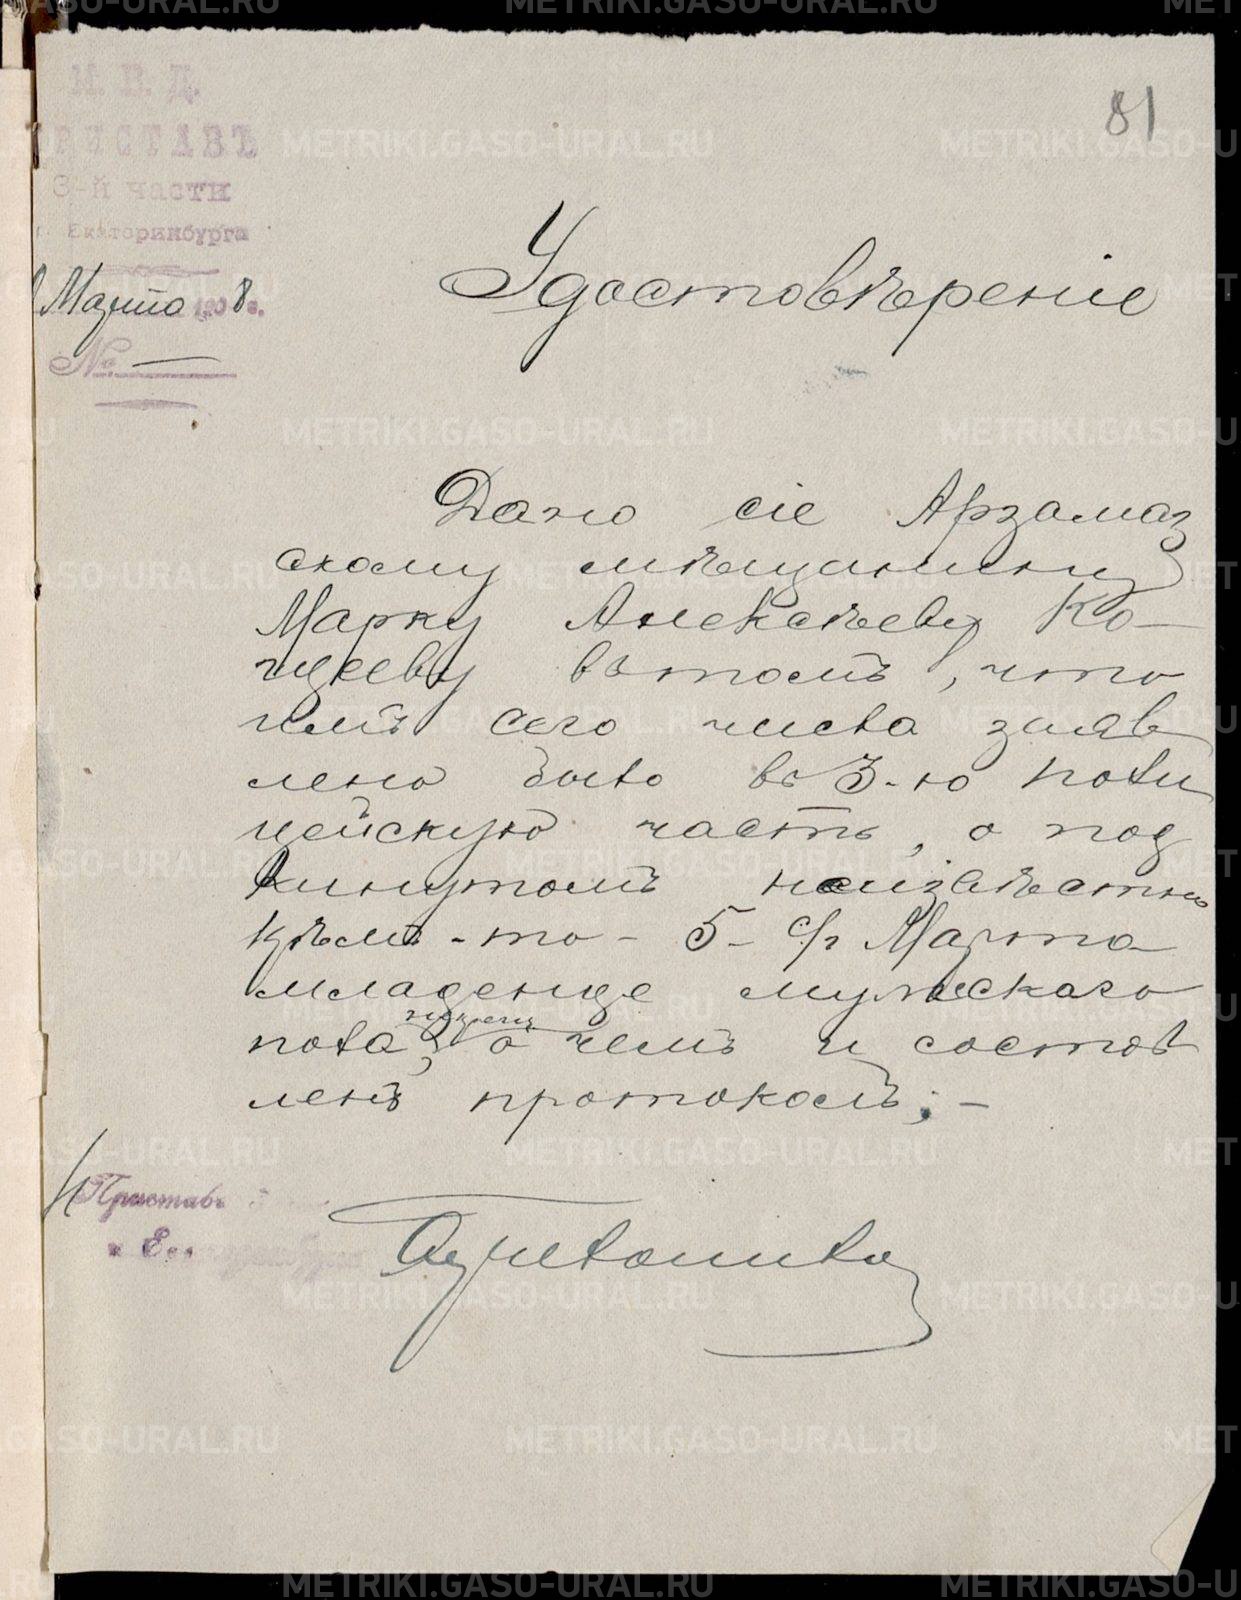 81
М. В. Д.
ПРИСТАВЪ
3-й части
г. Екатеринбурга
Марта 1908 г.
№ —
Удостовѣреніе
Дано сіе Арзамаз
скому мѣщанину
Марку Алексѣеву Ко-
щееву въ томъ, что
имъ сего числа заяв
лено было въ 3-ю поли
цейскую часть, о под
кинутомъ неизвѣстно
кѣмъ-то - 5 - с/г Марта
младенце мужескаго
пола, о чемъ и состав
ленъ протоколъ; -
Приставъ 3
г. Екатеринбурга
METRIKI.GASO-URAL.RU